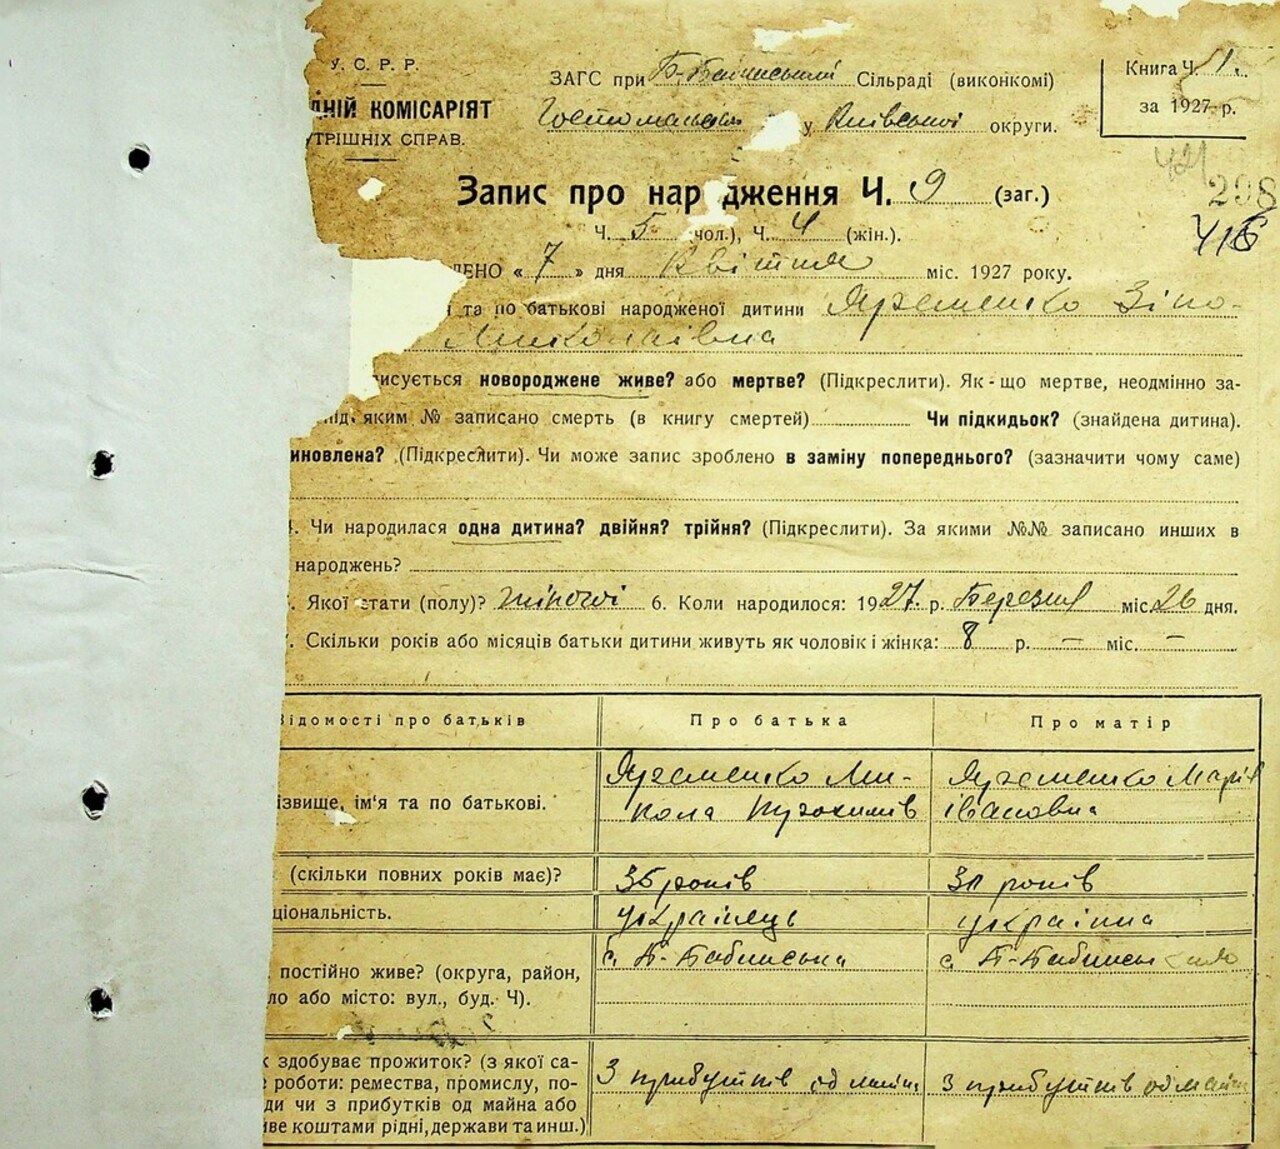 У. С. Р. Р.
ДНІЙ КОМІСАРІЯТ
ТРІШНІХ СПРАВ.
ЗАГС при Сільраді (виконкомі)
у Київської округи.
Книга Ч. 1.
за 1927 р.
298
416
Запис про народження Ч. 9 (заг.)
Ч. 5 (чол.), Ч. 4 (жін.).
ЛЕНО « 7 » дня Квітня міс. 1927 року.
та по батькові народженої дитини Яременко Зіно-
Миколаівна
исується новороджене живе? або мертве? (Підкреслити). Як-що мертве, неодмінно за-
під яким № записано смерть (в книгу смертей) Чи підкидьок? (знайдена дитина).
иновлена? (Підкреслити). Чи може запис зроблено в заміну попереднього? (зазначити чому саме)
Чи народилася одна дитина? двійня? трійня? (Підкреслити). За якими №№ записано инших в
народжень?
Якої стати (полу)? жіночої 6. Коли народилося: 1927. р. Березня міс. 26 дня.
Скільки років або місяців батьки дитини живуть як чоловік і жінка: 8 р. — міс. —
Відомості про батьків Про батька Про матір
ізвище, ім'я та по батькові.
Яременко Ми-
кола
Яременко Марія
івановна
(скільки повних років має)? 36 років років
ціональність. украінець украінка
постійно живе? (округа, район,
ло або місто: вул., буд. Ч).
с.
с.
к здобуває прожиток? (з якої са-
роботи: ремества, промислу, по-
ди чи з прибутків од майна або
ве коштами рідні, держави та инш.)
З прибутків од майна
З прибутків од майна